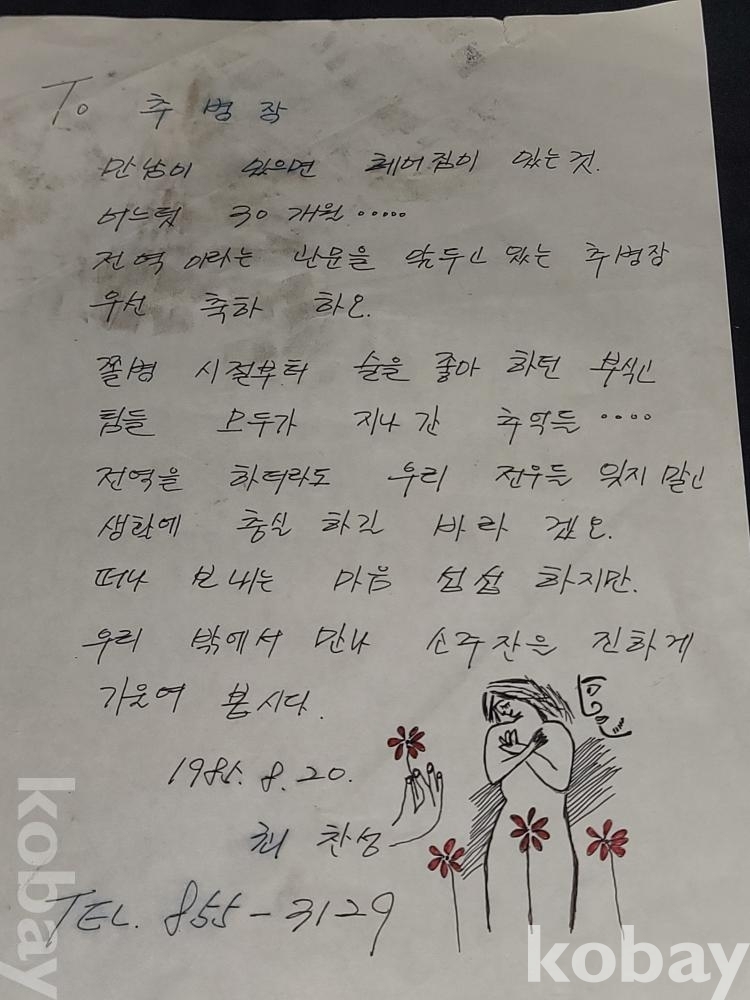 To 추병장
만남이 있으면 헤어짐이 있는것.
어느덧 30개월.....
전역 이라는 관문을 앞두고 있는 추병장
우선 축하 하오.
쫄병 시절부터 술을 좋아 하던 부식고
팀들 모두가 지나간 추억들 ....
전역을 하더라도 우리 전우들 잊지말고
생활에 충실 하길 바라 겠오.
떠나 보내는 마음 섭섭 하지만.
우리 밖에서 만나 소주잔은 진하게
기울여 봅시다.
1985. 8. 20.
최 찬성
TEL. 855-3129
kobay
kobay